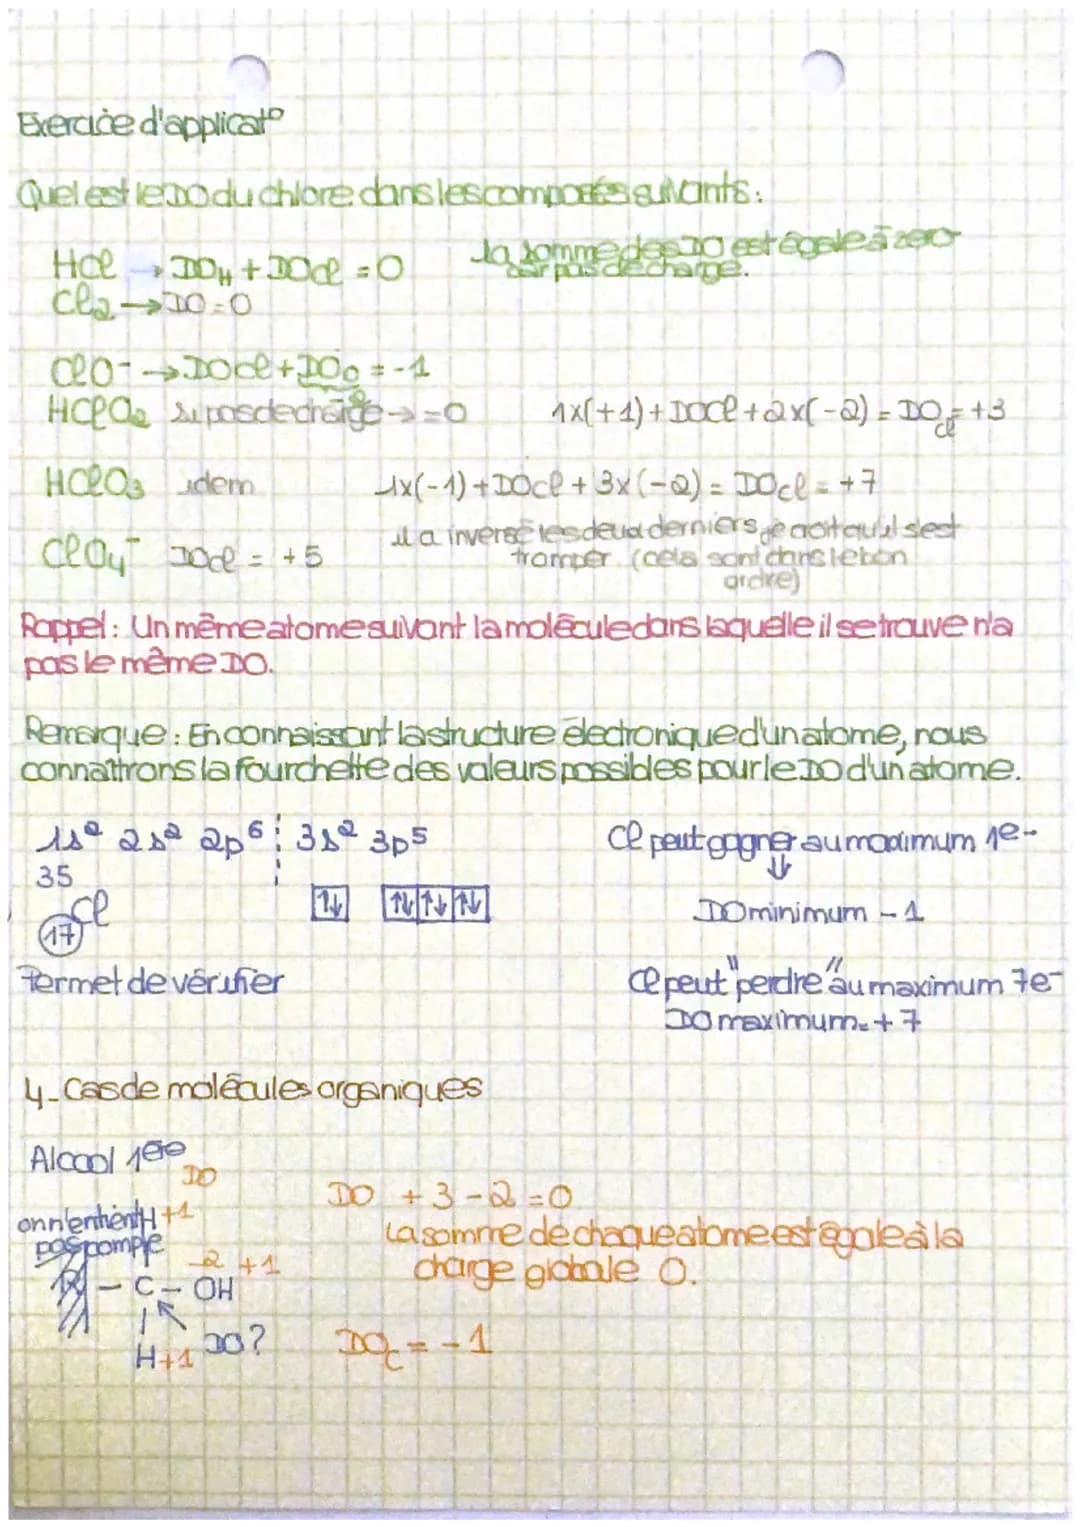 Exercice d'applicat°
Quel est le DO du chlore dans les composés suivants:
HCl → DO_H + DOCl = 0 la somme des DO est égale à zero
car pas de charge.
Cl2 → DO = 0
ClO- → DOCl + DO_O = -1
HClO2 si pas de charge → = 0 1x(+1) + DOCl + 2x(-2) = DO_Cl = +3
HClO3 idem 1x(-1) + DOCl + 3x(-2) = DOCl = +7
ClO4- DOCl = +5 il a inversé les deux derniers, je croit qu'il s'est
tromper (cela sont dans le bon
ordre)
Rappel: Un même atome suivant la molécule dans laquelle il se trouve n'a
pas le même DO.
Remarque: En connaissant la structure électronique d'un atome, nous
connaîtrons la fourchette des valeurs possibles pour le DO d'un atome.
1s2 2s2 2p6 ¦ 3s2 3p5 Cl peut gagner au maximum 1e-
35
Cl ↑↓ ↑↓ ↑↓ ↑↓ ⇓
17 DO minimum -1
Permet de vérifier Cl peut "perdre" au maximum 7e-
DO maximum = +7
4- Cas de molécules organiques
Alcool 1ère
DO DO + 3 - 2 = 0
on n'en tient H +1 La somme de chaque atome est égale à la
pas compte charge globale 0.
-2 +1
R - C - OH
DO?
H+1 DO_C = -1